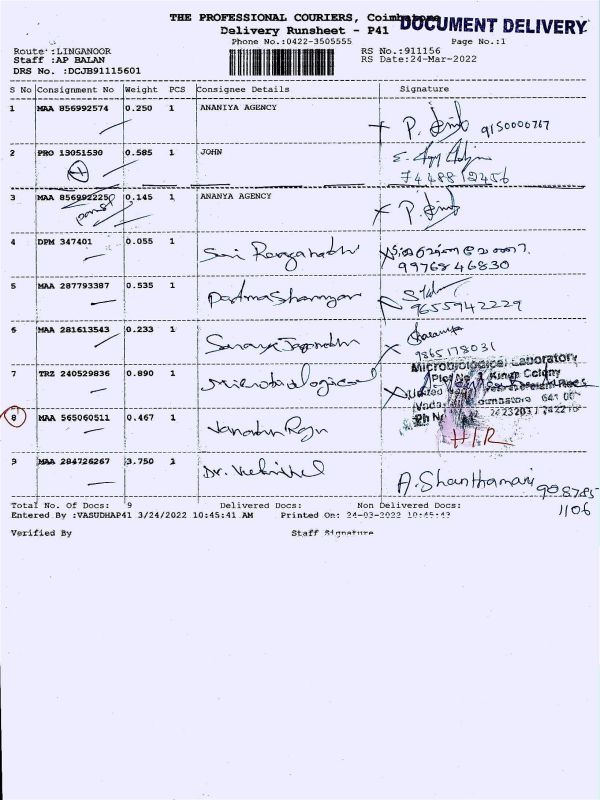 THE PROFESSIONAL COURIERS, Coimbatore
DOCUMENT DELIVERY
Delivery Runsheet - P41
Phone No.:0422-3505555
Page No.:1
Route :LINGANOOR
RS No.:911156
Staff :AP BALAN
RS Date:24-Mar-2022
DRS No. :DCJB91115601
S No Consignment No Weight PCS Consignee Details Signature
1 MAA 856992574 0.250 1 ANANIYA AGENCY
9150000767
2 PRO 13051530 0.585 1 JOHN
74488 12456
3 MAA 856992225 0.145 1 ANANYA AGENCY
4 DPM 347401 0.055 1 Sai Ranganathan
99768 46830
5 MAA 287793387 0.535 1
9655942229
6 MAA 281613543 0.233 1
9865178031
7 TRZ 240529836 0.890 1 Microbiological
Microbiological Laboratory
Kings Colony
8 MAA 565060511 0.467 1
HIR
9 MAA 284726267 3.750 1 Dr.
A. Shanthamani 908785
1106
Total No. Of Docs: 9 Delivered Docs: Non Delivered Docs:
Entered By :VASUDHAP41 3/24/2022 10:45:41 AM Printed On: 24-03-2022 10:45:43
Verified By Staff Signature